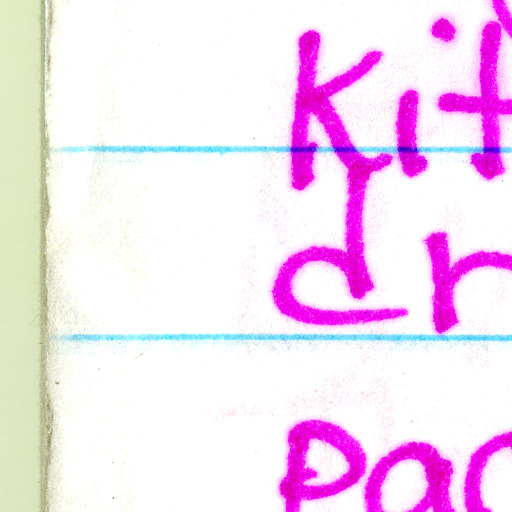 Kit
dr
Pac